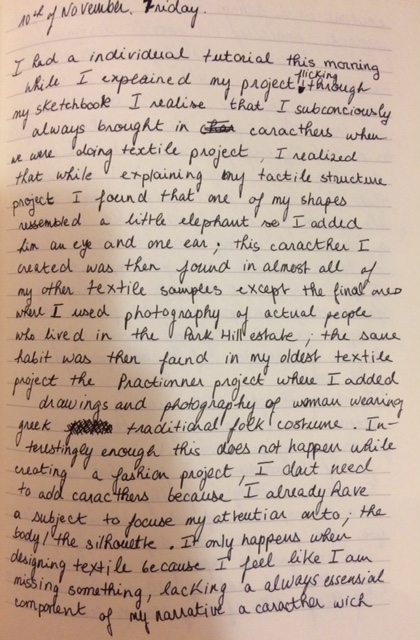 10th of November. Friday.
I had a individual tutorial this morning
while I explained my project flicking through
my sketchbook I realise that I subconsciously
always brought in caracthers when
we were doing textile project, I realized
that while explaining my tactile structure
project I found that one of my shapes
ressembled a little elephant so I added
him an eye and one ear; this caracther I
created was then found in almost all of
my other textile samples except the final ones
where I used photography of actual people
who lived in the Park Hill estate; the same
habit was then found in my oldest textile
project the Practionner project where I added
drawings and photography of woman wearing
greek traditional folk costume. In-
terestingly enough this does not happen while
creating a fashion project, I dont need
to add caracthers because I already have
a subject to focuse my attention onto; the
body/the silhouette. It only happens when
designing textile because I feel like I am
missing something, lacking a always essensial
component of my narrative a caracther wich